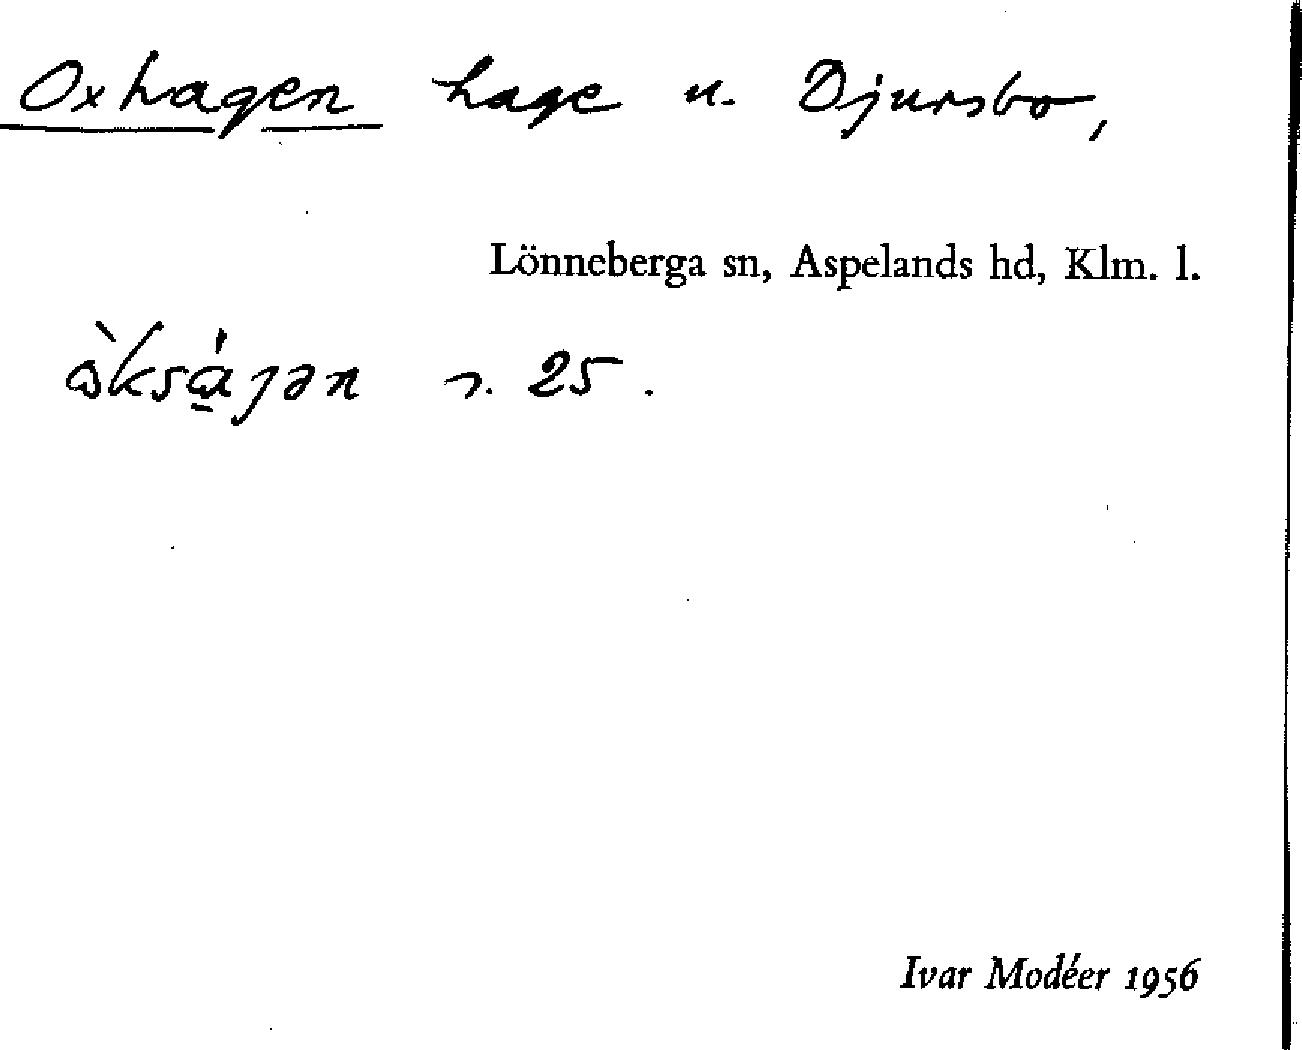 Oxhagen hage u. Djursbo,
Lönneberga sn, Aspelands hd, Klm. l.
s. 25.
Ivar Modéer 1956